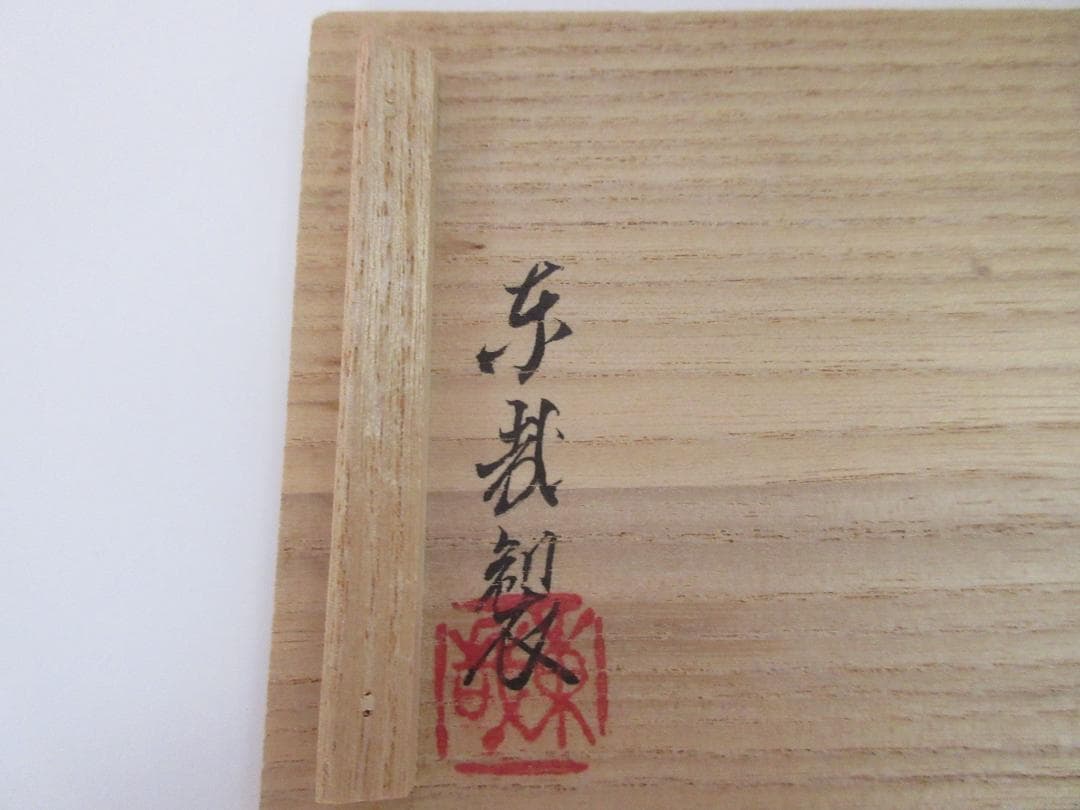 東哉製